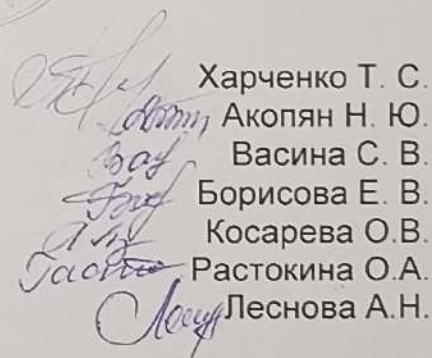 Харченко Т. С.
Акопян Н. Ю.
Васина С. В.
Борисова Е. В.
Косарева О.В.
Растокина О.А.
Леснова А.Н.